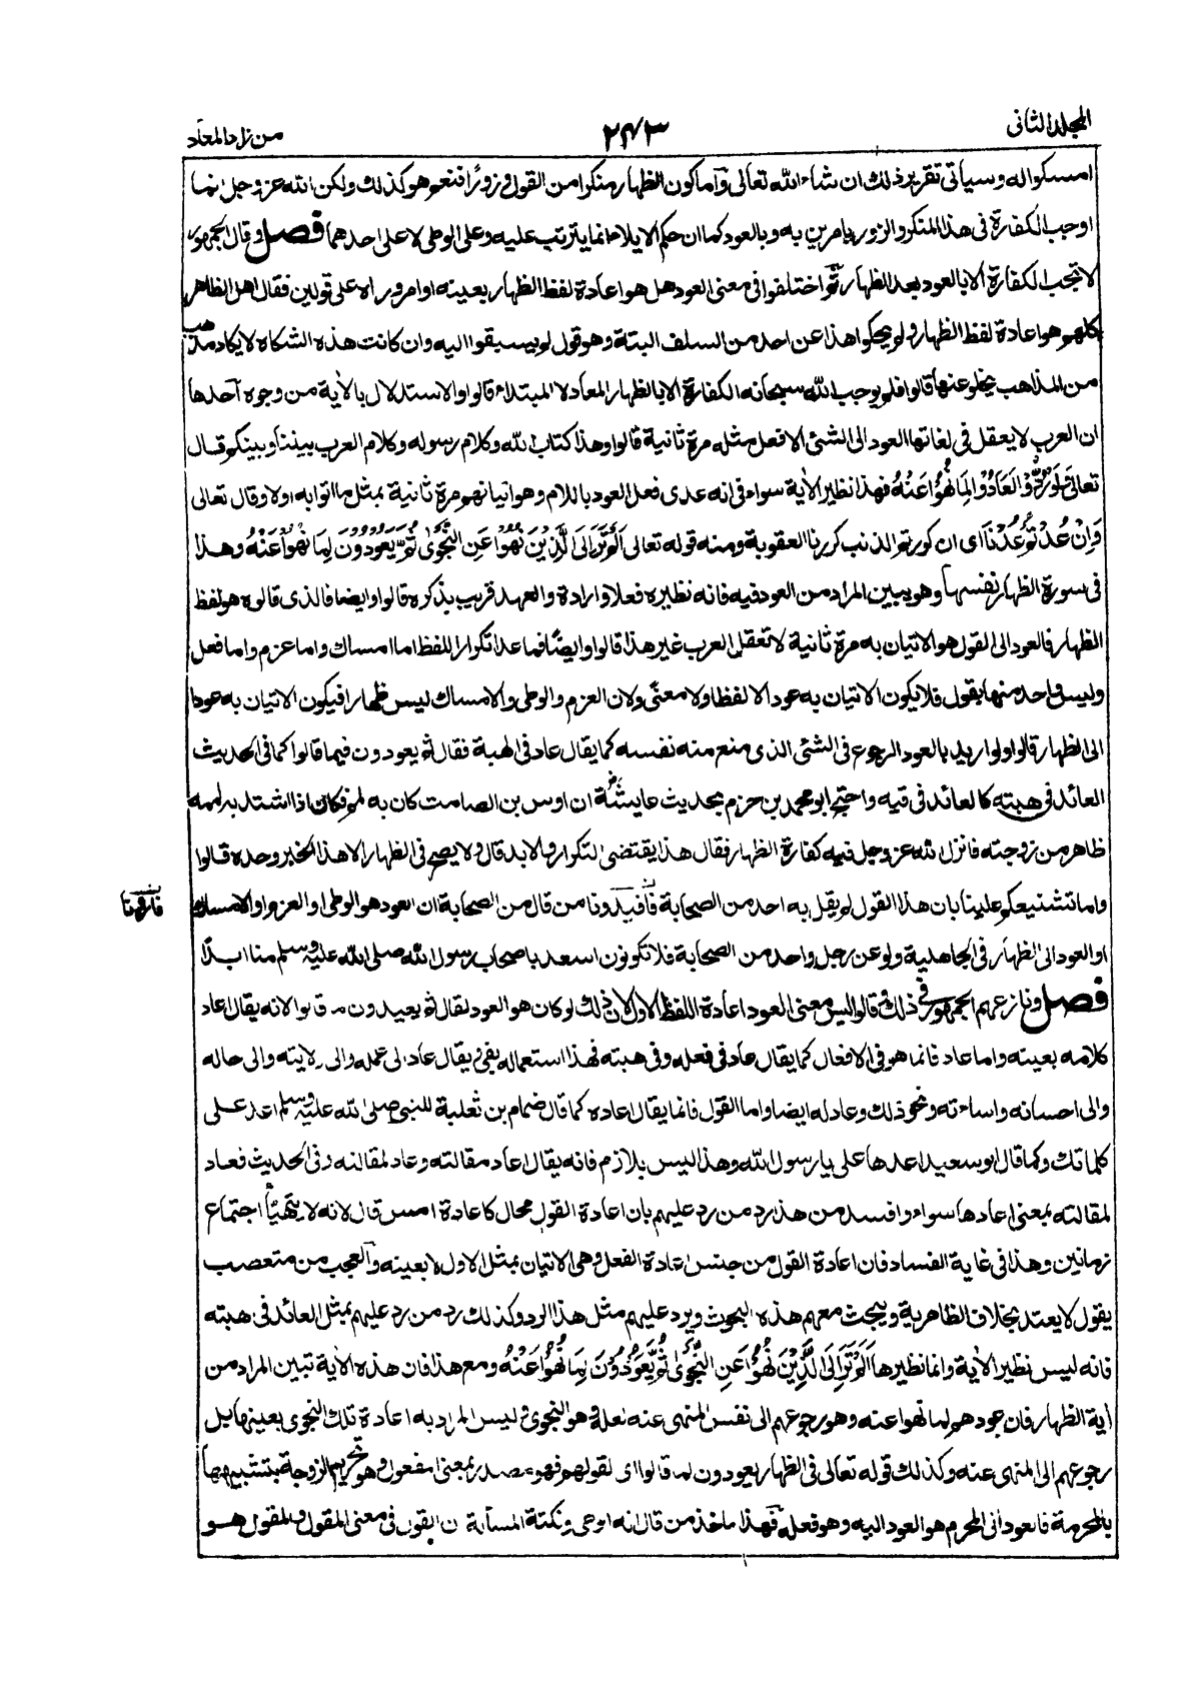 المجلد الثانی
٢٤٣
من زاد المعاد
امسكوا له وسياتی تقرير ذلك ان شاء الله تعالی وٓاما كون الظهار منكرا من القول وزورًا فنعم هو كذلك ولكن الله عز وجل انما
اوجب الكفارة فی هذا المنكر والزور بامرين به وبالعود كما ان حكم الايلاء انما يترتب عليه وعلی الوطی لا علی احدهما فصل وقال الجمهور
لا تجب الكفارة الا بالعود بعد الظهار ثم اختلفوا فی معنی العود هل هو اعادة لفظ الظهار بعينه او امر وراءه علی قولين فقال اهل الظاهر
كلهم هو اعادة لفظ الظهار ولم يحكوا هذا عن احد من السلف البتة وهو قول لم يسبقوا اليه وان كانت هذه الشكاة لا يكاد مذهب
من المذاهب يخلو عنها قالوا فلم يوجب الله سبحانه الكفارة الا بالظهار المعاد لا المبتداء قالوا والاستدلال بالاٰية من وجوه آحدها
ان العرب لا يعقل فی لغاتها العود الی الشئی الا فعل مثله مرة ثانية قالوا وهذا كتاب الله وكلام رسوله وكلام العرب بيننا وبينكم قال
تعالی وَلَوْ رُدُّوْا لَعَادُوْا لِمَا نُهُوْا عَنْهُ فهذا نظير الاٰية سواء فی انه عدی فعل العود باللام وهو اتيانهم مرة ثانية بمثل ما اتوا به اولا وقال تعالی
وَاِنْ عُدْتُّمْ عُدْنَا ای ان كررتم الذنب كررنا العقوبة ومنه قوله تعالی اَلَمْ تَرَ اِلَی الَّذِيْنَ نُهُوْا عَنِ النَّجْوٰی ثُمَّ يَعُوْدُوْنَ لِمَا نُهُوْا عَنْهُ وهذا
فی سورة الظهار نفسها وهو يبين المراد من العود فيه فانه نظيره فعلا وارادة والعهد قريب بذكره قالوا وايضا فالذی قالوه هو لفظ
الظهار فالعود الی القول هو الاتيان به مرة ثانية لا تعقل العرب غير هذا قالوا وايضًا فما عدا تكرار اللفظ اما امساك واما عزم واما فعل
وليس واحد منها بقول فلا يكون الاتيان به عودا لا لفظا ولا معنًی ولان العزم والوطی والامساك ليس ظهارا فيكون الاتيان به عودا
الی الظهار قالوا ولو اريد بالعود الرجوع فی الشئی الذی منع منه نفسه كما يقال عاد فی الهبة فقال ثم يعودون فيما قالوا كما فی الحديث
العائد فی هبته كالعائد فی قيه واحتج ابو محمد بن حزم بحديث عايشة ان اوس بن الصامت كان به لمم فكان اذا اشتد به لممه
ظاهر من زوجته فانزل الله عز وجل فيه كفارة الظهار فقال هذا يقتضی التكرار ولا بد قال ولا يصح فی الظهار الا هذا الخبر وحده قالوا
واما تشنيعكم علينا بان هذا القول لم يقل به احد من الصحابة فآفيدونا من قال من الصحابة ان العود هو الوطی او العزم او الامساك
فارقهنا
او العود الی الظهار فی الجاهلية ولو عن رجل واحد من الصحابة فلا تكونون اسعد باصحاب رسول الله صلی الله عليه وسلم منا ابدًا
فصل ونازعهم الجمهور فی ذلك وقالوا ليس معنی العود اعادة اللفظ الاول لان ذلك لو كان هو العود لقال ثم يعيدون ما قالوا لانه يقال اعاد
كلامه بعينه واما عاد فانما هو فی الافعال كما يقال عاد فی فعله وفی هبته فهذا استعماله بفی ويقال عاد الی عمله والی ولايته والی حاله
والی احسانه واساءته ونحو ذلك وعاد له ايضا واما القول فانما يقال اعاده كما قال ضمام بن ثعلبة للنبی صلی الله عليه وسلم اعد علی
كلماتك وكما قال ابو سعيد اعدها علی يا رسول الله وهذا ليس بلازم فانه يقال اعاد مقالته وعاد لمقالته وفی الحديث فعاد
لمقالته بمعنی اعادها سواء وافسد من هذا رد من رد عليهم بان اعادة القول محال كاعادة امس قال لانه لا يتهيأ اجتماع
زمانين وهذا فی غاية الفساد فان اعادة القول من جنس اعادة الفعل وهی الاتيان بمثل الاول لا بعينه والعجب من متعصب
يقول لا يعتد بخلاف الظاهرية ويبحث معهم هذه البحوث ويرد عليهم مثل هذا الرد وكذلك رد من رد عليهم بمثل العائد فی هبته
فانه ليس نظير الاٰية وانما نظيرها اَلَمْ تَرَ اِلَی الَّذِيْنَ نُهُوْا عَنِ النَّجْوٰی ثُمَّ يَعُوْدُوْنَ لِمَا نُهُوْا عَنْهُ ومع هذا فان هذه الاٰية تبين المراد من
اٰية الظهار فان عودهم لما نهوا عنه وهو رجوعهم الی نفس المنهی عنه لعله وهو النجوی وليس المراد به اعادة تلك النجوی بعينها بل
رجوعهم الی المنهی عنه وكذلك قوله تعالی فی الظهار يعودون لما قالوا ای لقولهم فهو مصدر بمعنی المفعول وهو تحريم الزوجة بتشبيهها
بالمحرمة فالعود الی المحرم هو العود اليه وهو فعله فهذا ماخذ من قال انه الوطی ونكتة المسألة ان القول فی معنی المقول والمقول هو